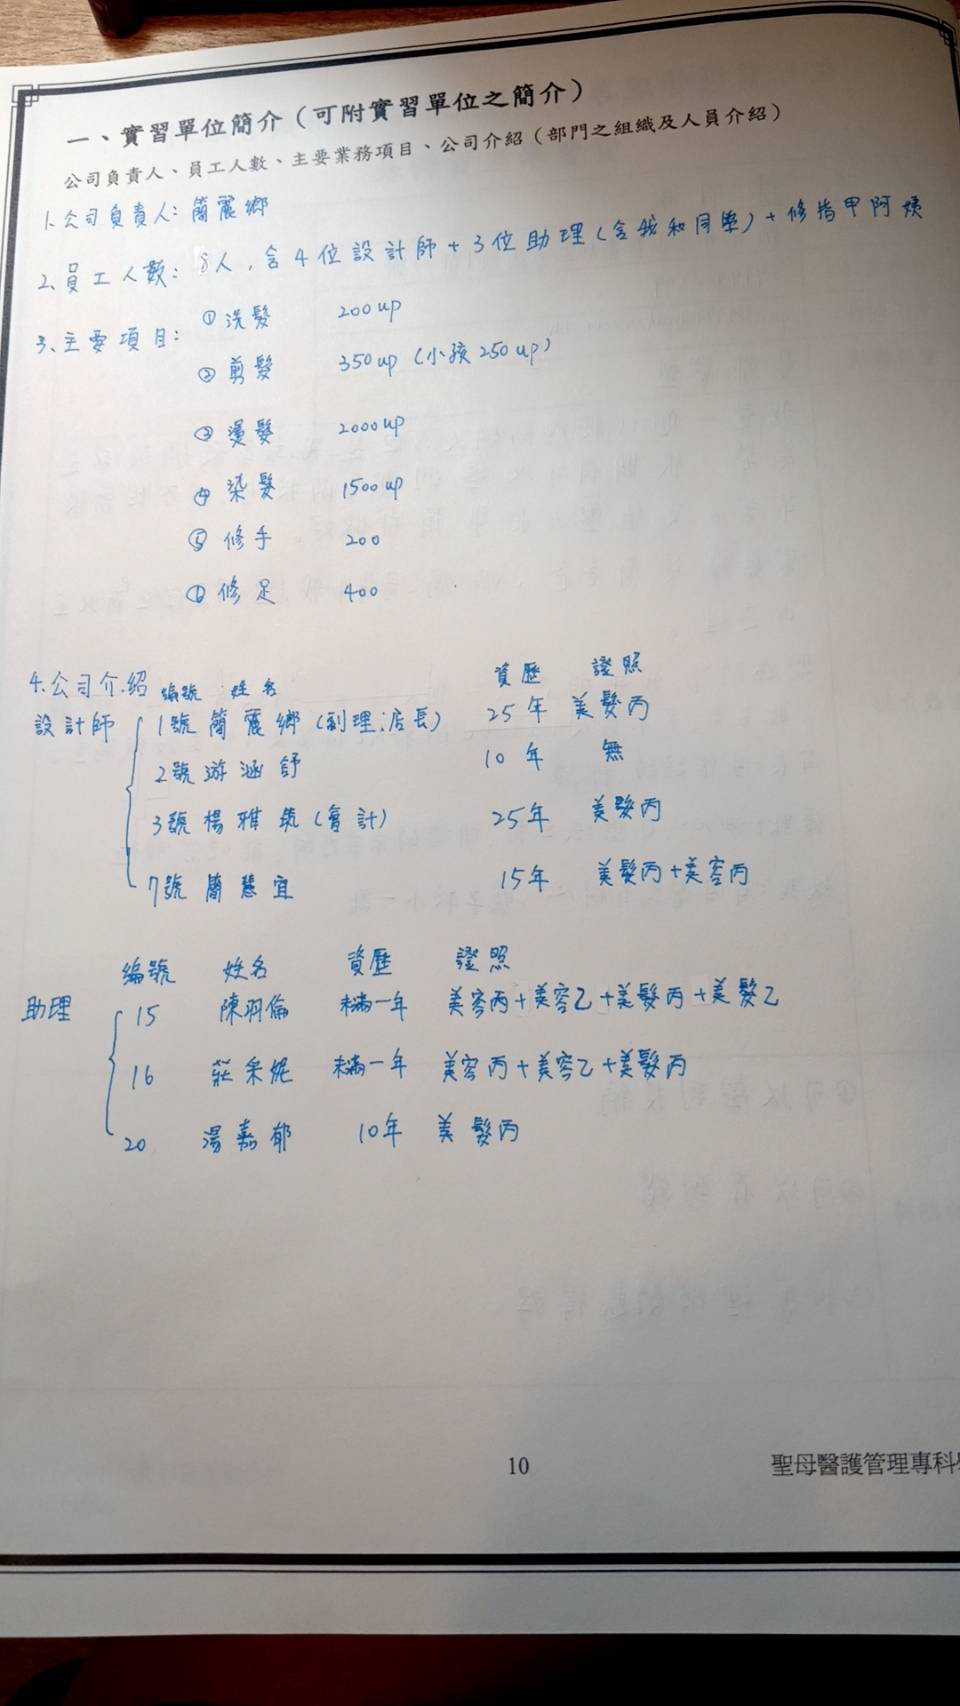 一、實習單位簡介（可附實習單位之簡介）
公司負責人、員工人數、主要業務項目、公司介紹（部門之組織及人員介紹）
1.公司負責人：簡麗鄉
2.員工人數：8人，含4位設計師+3位助理(含我和同學)+修指甲阿姨
3.主要項目：①洗髮 200up
②剪髮 350up (小孩250up)
③燙髮 2000up
④染髮 1500up
⑤修手 200
⑥修足 400
4.公司介紹 編號 姓名 資歷 證照
設計師 1號 簡麗鄉(副理;店長) 25年 美髮丙
2號 游涵舒 10年 無
3號 楊雅筑(會計) 25年 美髮丙
7號 簡慧宜 15年 美髮丙+美容丙
編號 姓名 資歷 證照
助理 15 陳羽倫 未滿一年 美容丙+美容乙+美髮丙+美髮乙
16 莊采妮 未滿一年 美容丙+美容乙+美髮丙
20 湯嘉郁 10年 美髮丙
10
聖母醫護管理專科